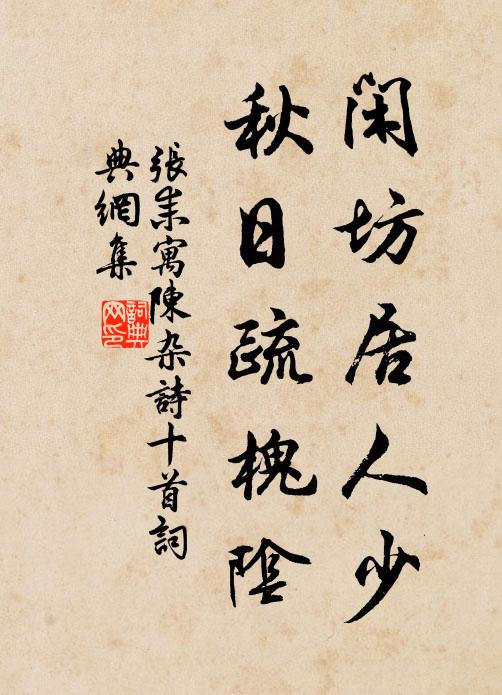 閑坊居人少
秋日疏槐陰
張耒寓陳杂詩十首詞
典網集
詞典网印